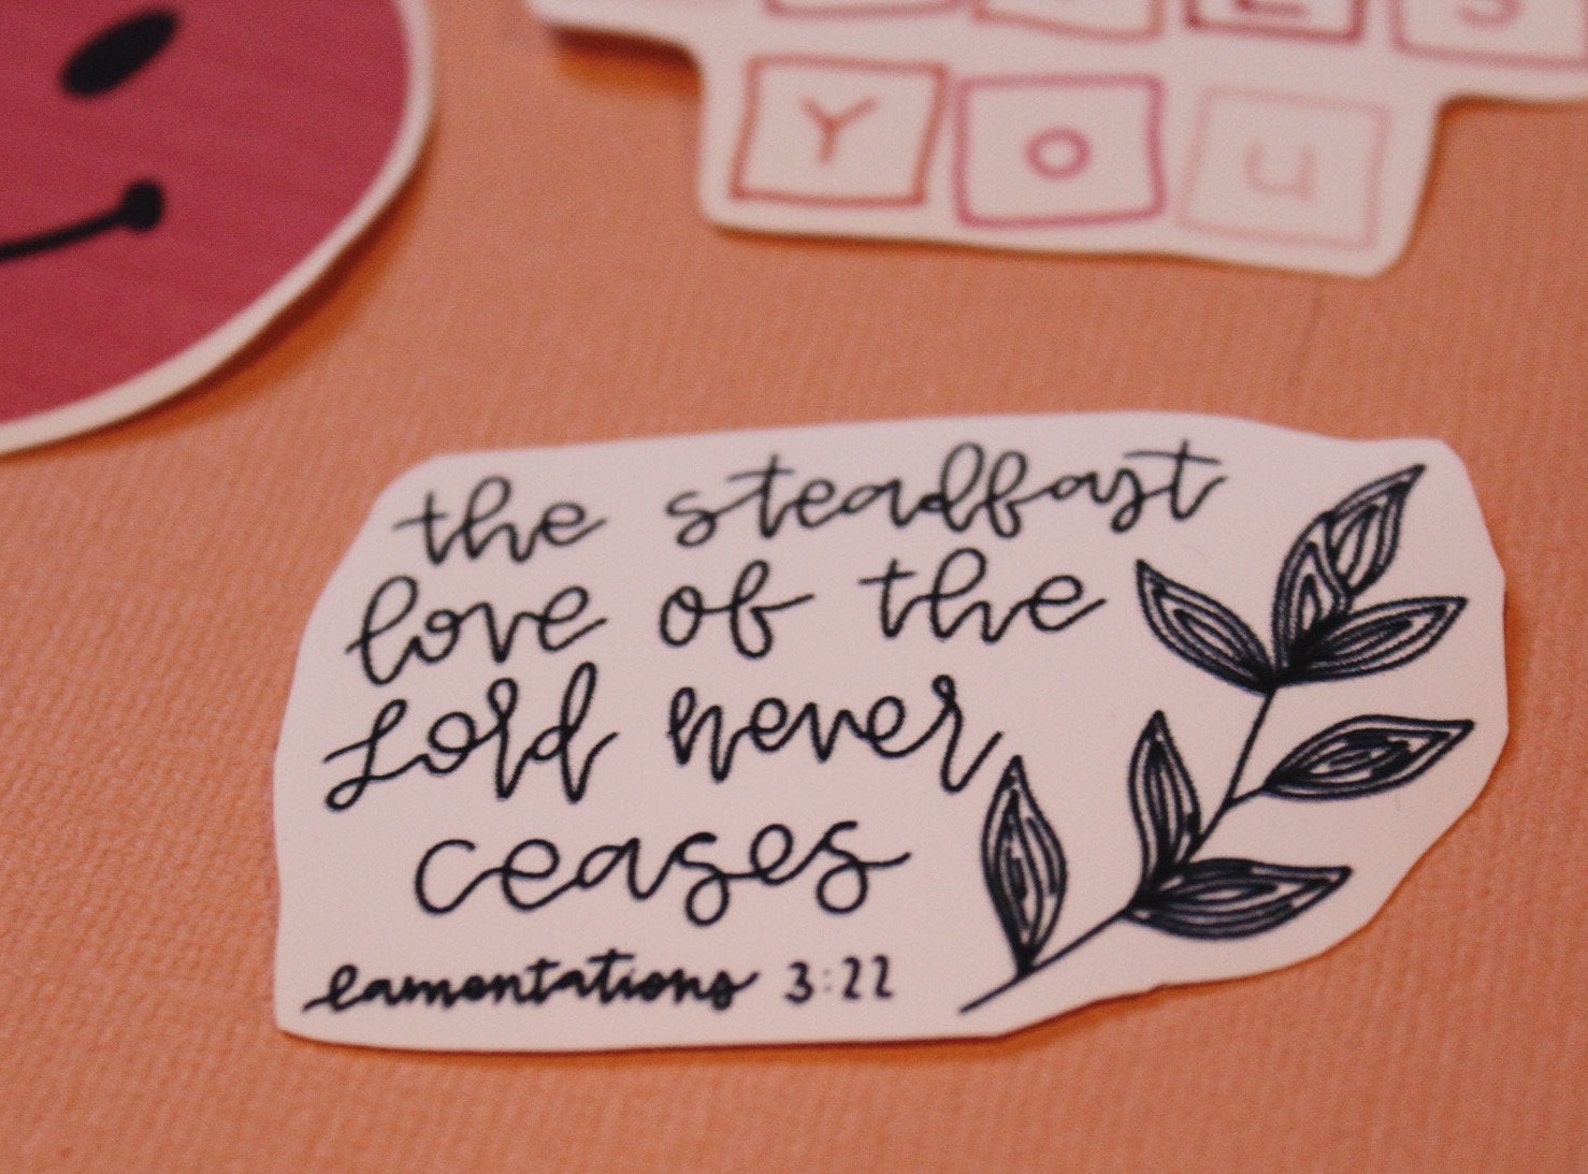 YOU
the steadfast
love of the
Lord never
ceases
lamentations 3:22